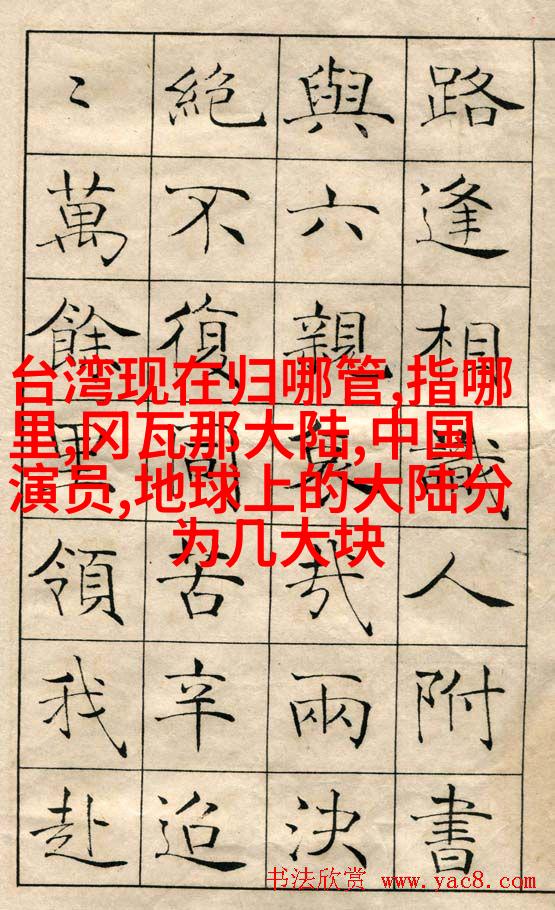 路逢相識人附書
與六親哀哉兩決
絕不復同苦辛迢
〻萬餘里領我赴
台湾现在归哪管,指哪
里,冈瓦那大陆,中国
演员,地球上的大陆分
为几大块
书法欣赏 www.yac8.com